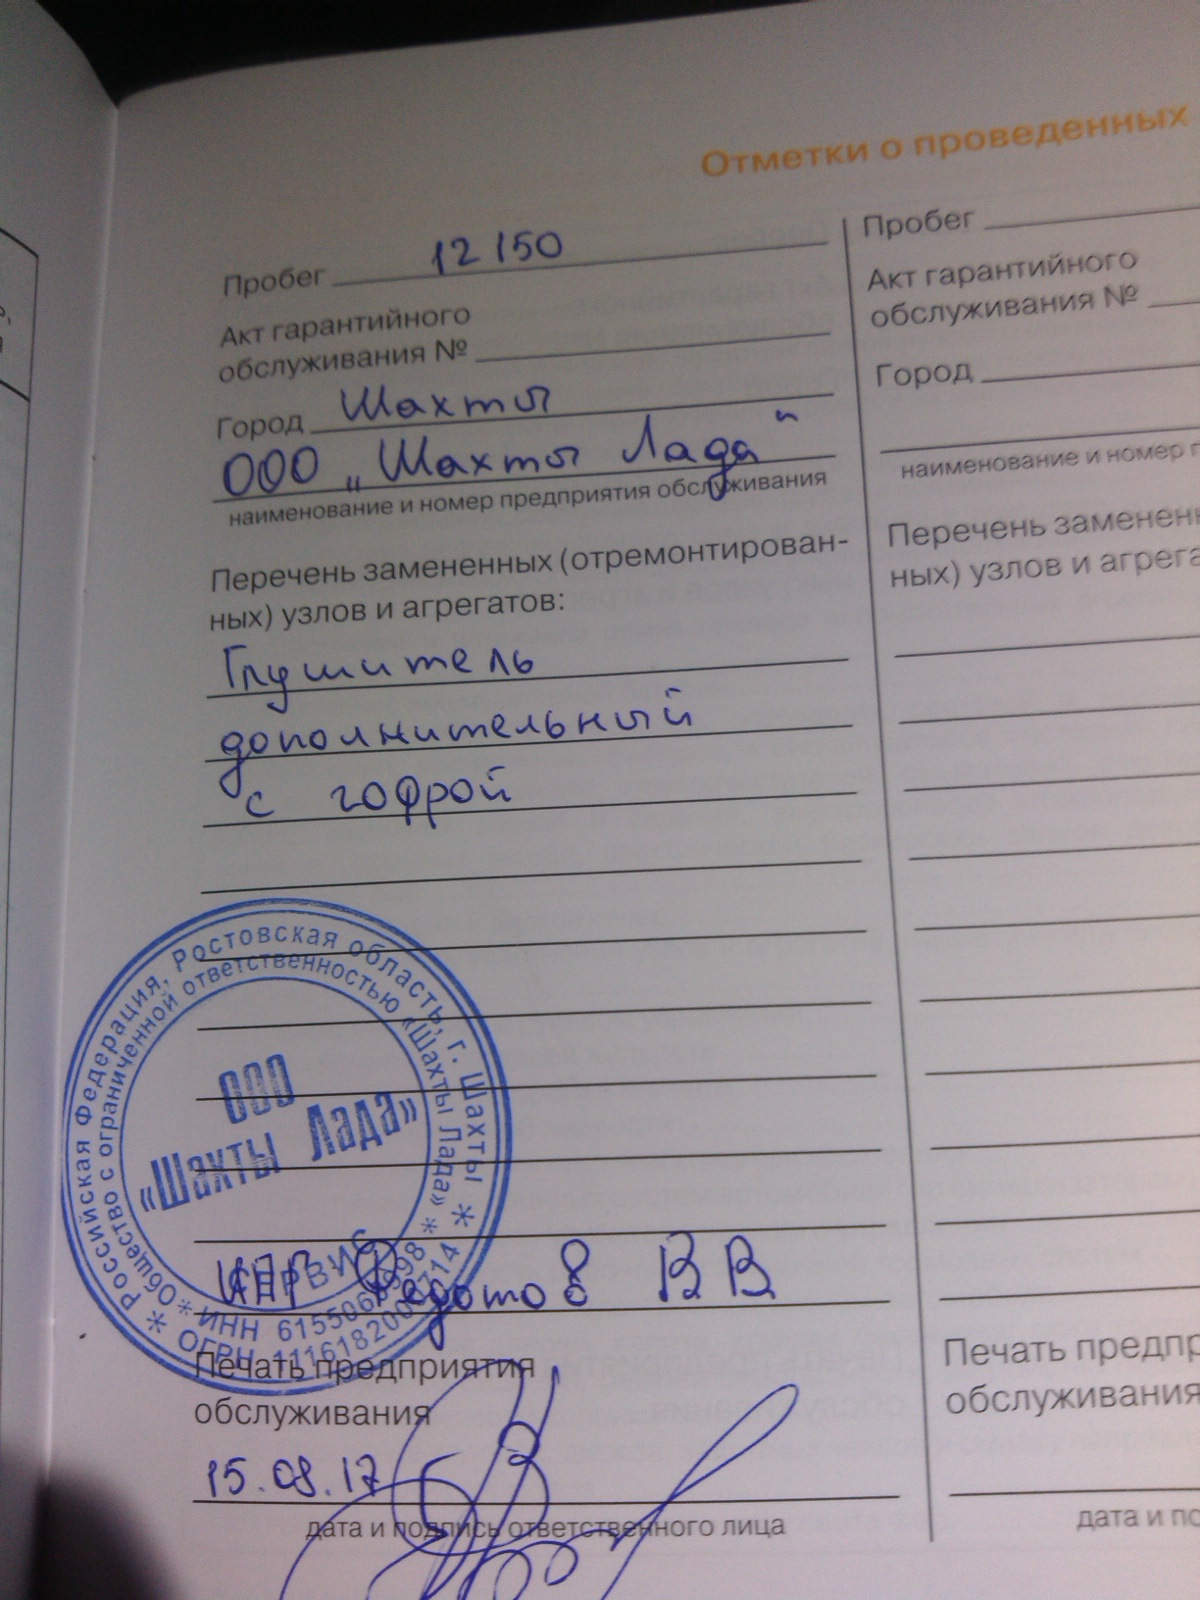 Отметки о проведенных
Пробег 12 150
Акт гарантийного
обслуживания №
Город Шахты
ООО „Шахты Лада"
наименование и номер предприятия обслуживания
Перечень замененных (отремонтирован-
ных) узлов и агрегатов:
Глушитель
дополнительный
с гофрой
Российская Федерация, Ростовская область, г. Шахты
Общество с ограниченной ответственностью «Шахты Лада»
ООО
«Шахты Лада»
СЕРВИС
ИНН
ОГРН
Федотов ВВ
Печать предприятия
обслуживания
15.08.17
дата и подпись ответственного лица
Пробег
Акт гарантийного
обслуживания №
Город
наименование и номер
Перечень заменен
ных) узлов и агрега
Печать предпр
обслуживания
дата и по